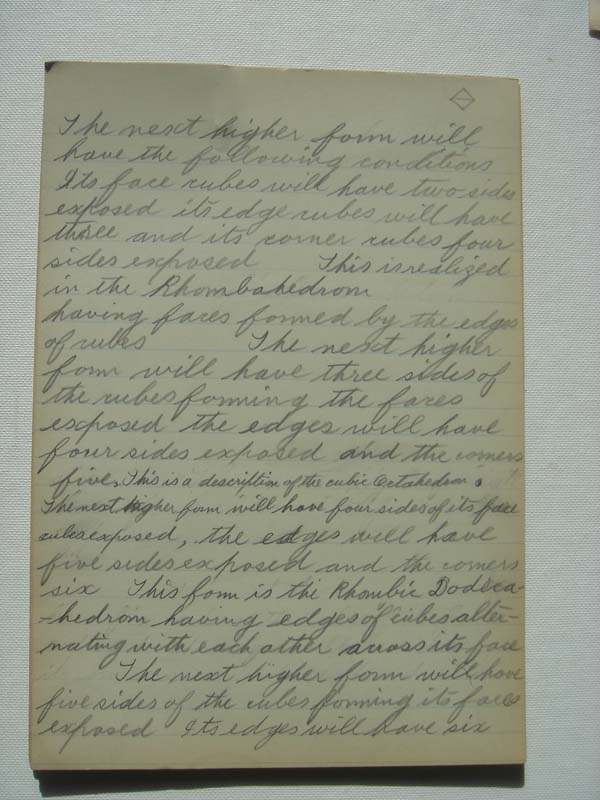 The next higher form will
have the following conditions
Its face cubes will have two sides
exposed its edge cubes will have
three and its corner cubes four
sides exposed This is realized
in the Rhombahedrom
having faces formed by the edges
of cubes The next higher
form will have three sides of
the cubes forming the faces
exposed the edges will have
four sides exposed and the corners
five. This is a description of the cubic Octahedron.
The next higher form will have four sides of its face
cubes exposed, the edges will have
five sides exposed and the corners
six This form is the Rhombic Dodeca-
-hedrom having edges of cubes alter-
nating with each other across its face
The next higher form will have
five sides of the cubes forming its faces
exposed Its edges will have six